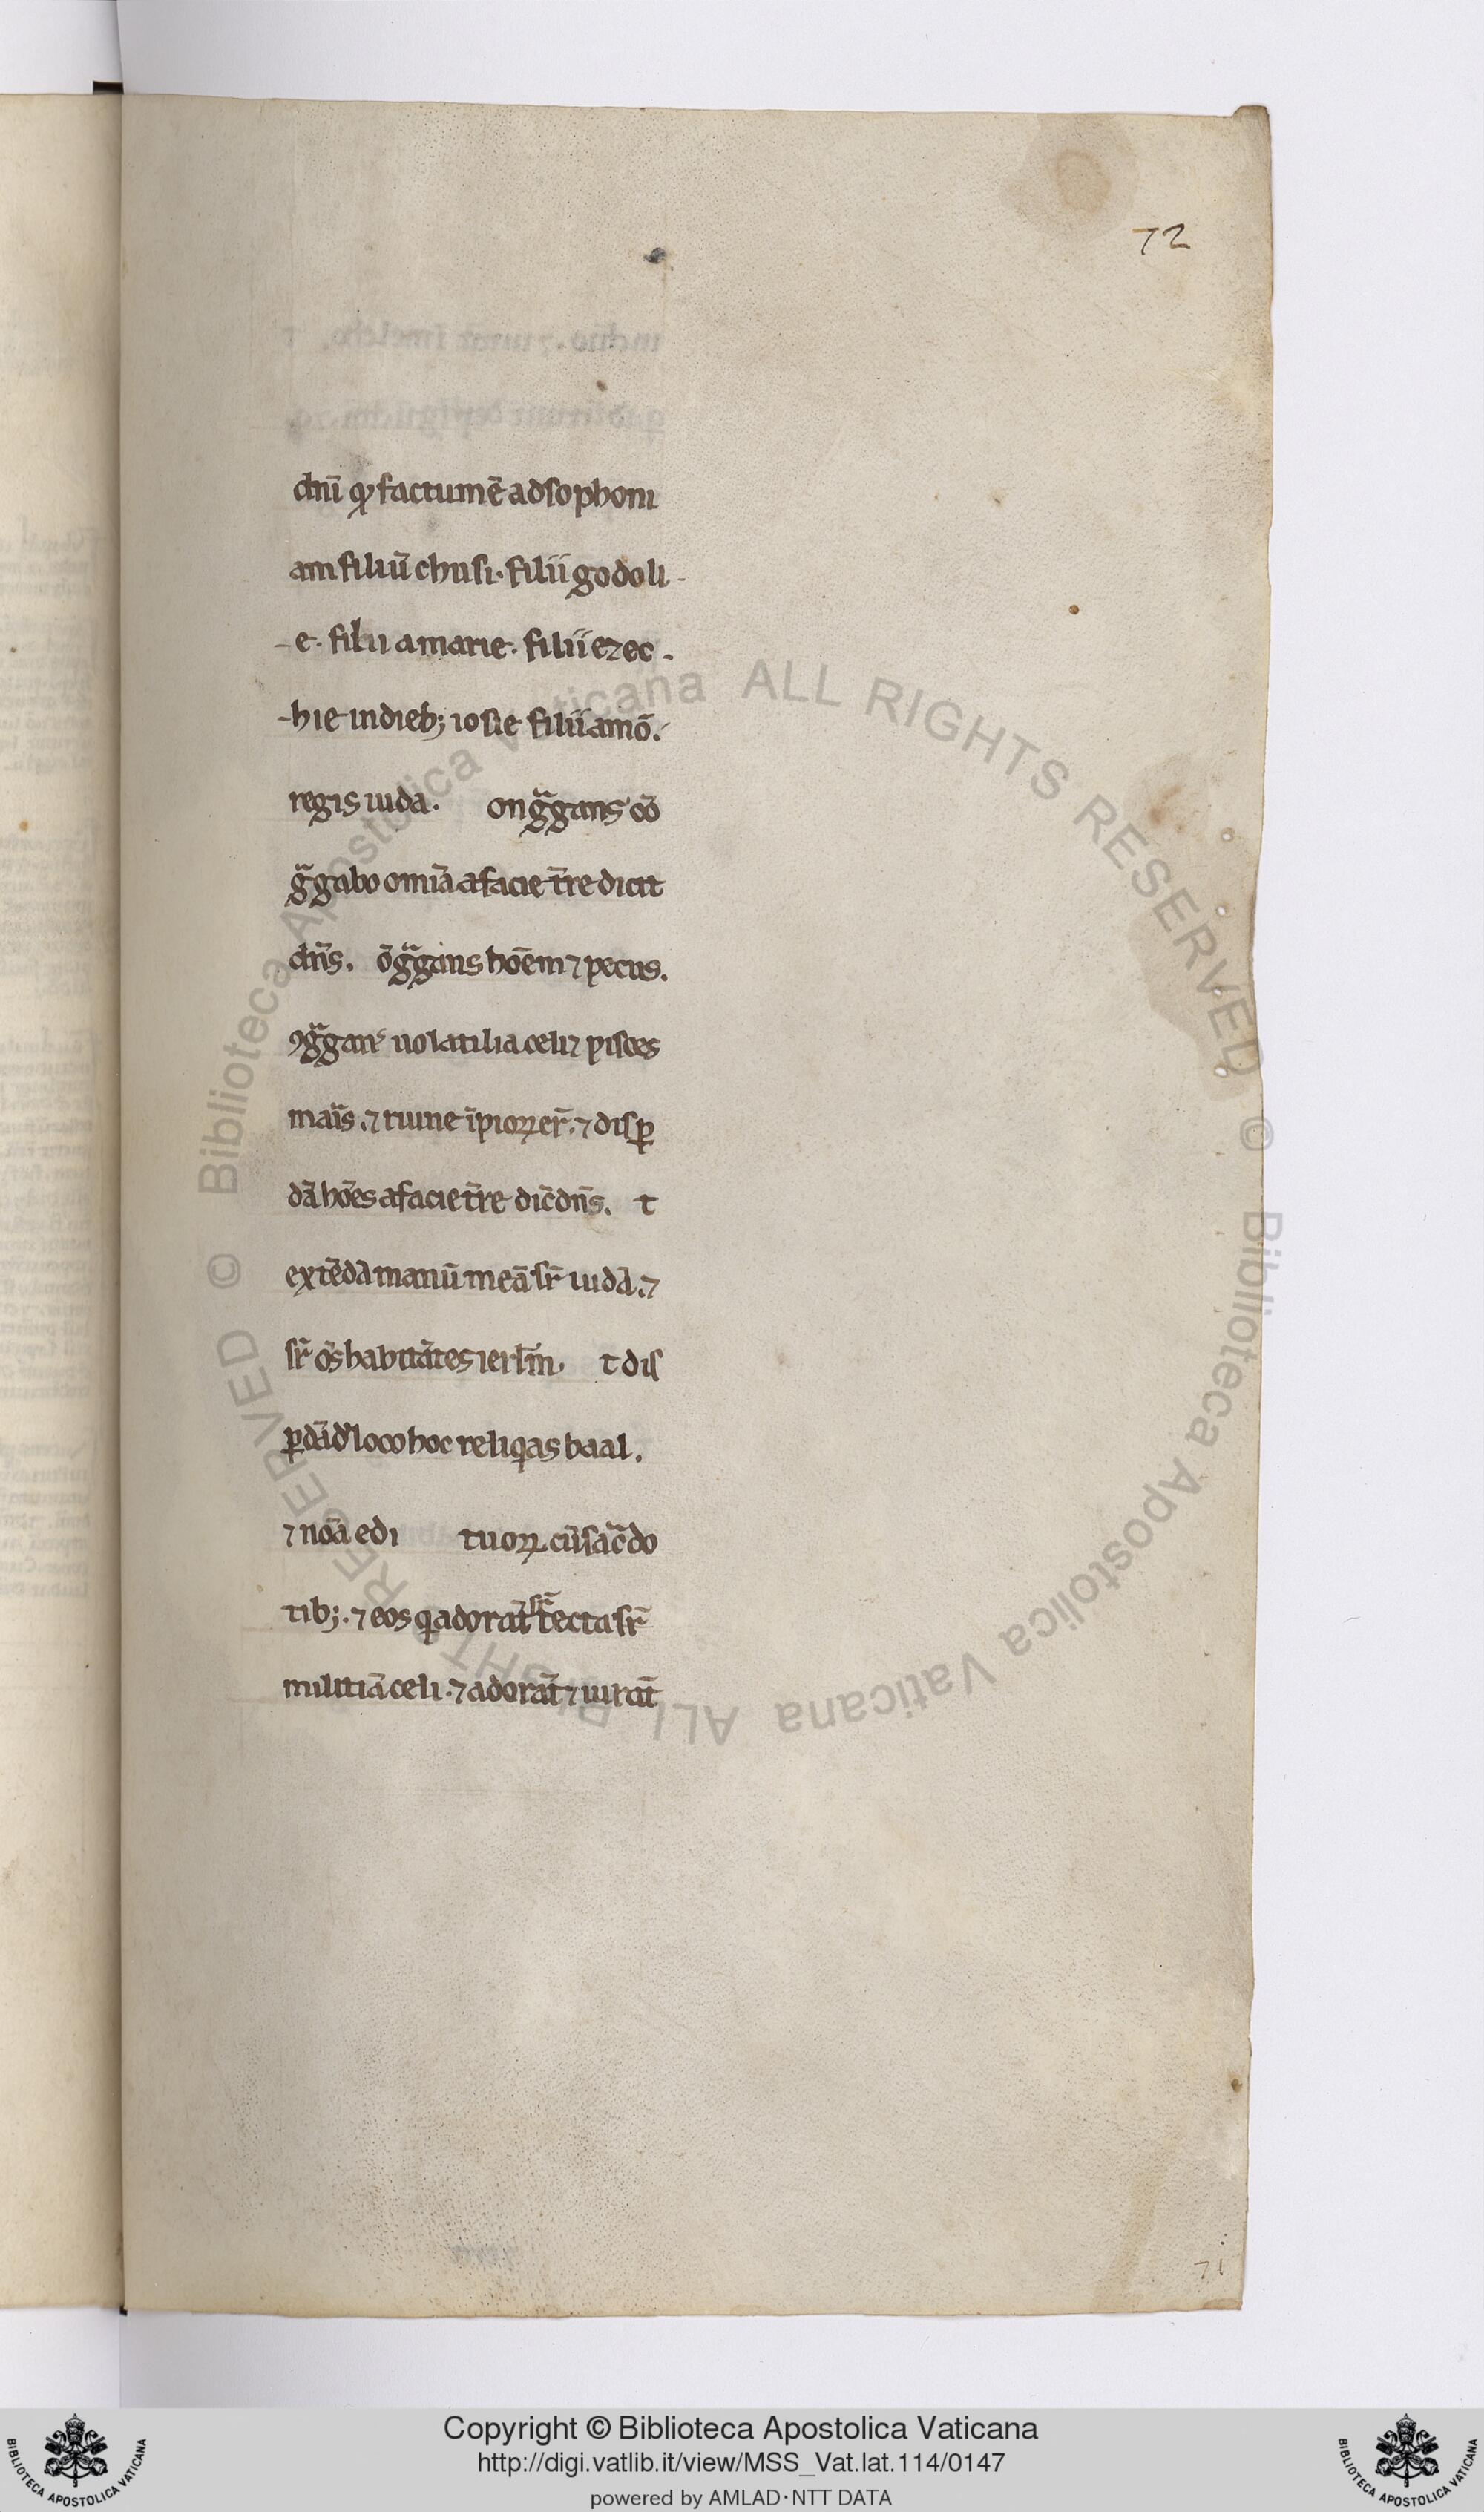 72
dnī ꝙ factum ē ad sophoni
am filiū chusi. filii godoli
e. filii amarie. filii ezec
hie in dieb; iosie filii amō.
regis iuda. ongͣgans ꝯ
gͣgabo omīa a facie tr̄e dicit
dn̄s. ōgͣgans hoēm ⁊ pecus.
ꝯgͣgans uolatilia celi ⁊ pisces
maͥs. ⁊ ruine īpioꝝ er̄. ⁊ disꝑ
dā hoēs a facie tr̄e dic̄ dn̄s. t
extēdā manū meā sr̄ iudā. ⁊
sr̄ oēs habitātes ierlm̄. t dis
ꝑdā d̓ loco hoc reliqͥas baal.
⁊ noīa edi tuoꝝ cū sac̄do
tib;. ⁊ eos qͥ adorāt sr̄ tecta sr̄
militiā celi. ⁊ adorāt ⁊ iurāt
71
© Biblioteca Apostolica Vaticana ALL RIGHTS RESERVED © Biblioteca Apostolica Vaticana ALL RIGHTS RESERVED
Copyright © Biblioteca Apostolica Vaticana
http://digi.vatlib.it/view/MSS_Vat.lat.114/0147
powered by AMLAD·NTT DATA
BIBLIOTECA APOSTOLICA VATICANA
BIBLIOTECA APOSTOLICA VATICANA